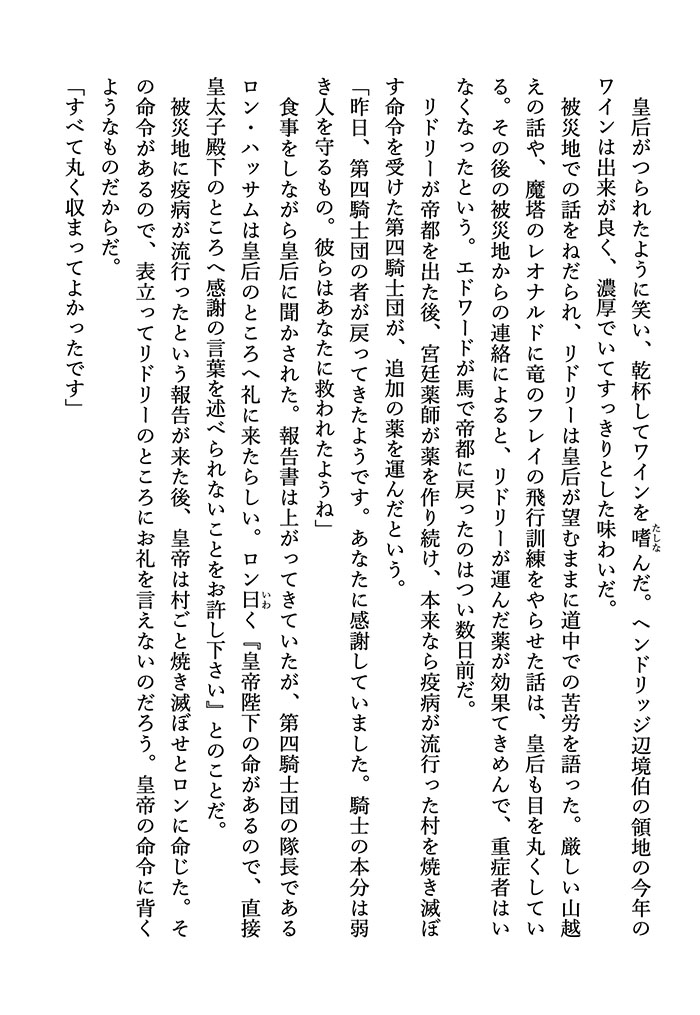 皇后がつられたように笑い、乾杯してワインを嗜んだ。ヘンドリッジ辺境伯の領地の今年の
ワインは出来が良く、濃厚でいてすっきりとした味わいだ。
被災地での話をねだられ、リドリーは皇后が望むままに道中での苦労を語った。厳しい山越
えの話や、魔塔のレオナルドに竜のフレイの飛行訓練をやらせた話は、皇后も目を丸くしてい
る。その後の被災地からの連絡によると、リドリーが運んだ薬が効果てきめんで、重症者はい
なくなったという。エドワードが馬で帝都に戻ったのはつい数日前だ。
リドリーが帝都を出た後、宮廷薬師が薬を作り続け、本来なら疫病が流行った村を焼き滅ぼ
す命令を受けた第四騎士団が、追加の薬を運んだという。
「昨日、第四騎士団の者が戻ってきたようです。あなたに感謝していました。騎士の本分は弱
き人を守るもの。彼らはあなたに救われたようね」
食事をしながら皇后に聞かされた。報告書は上がってきていたが、第四騎士団の隊長である
ロン・ハッサムは皇后のところへ礼に来たらしい。ロン曰く『皇帝陛下の命があるので、直接
皇太子殿下のところへ感謝の言葉を述べられないことをお許し下さい』とのことだ。
被災地に疫病が流行ったという報告が来た後、皇帝は村ごと焼き滅ぼせとロンに命じた。そ
の命令があるので、表立ってリドリーのところにお礼を言えないのだろう。皇帝の命令に背く
ようなものだからだ。
「すべて丸く収まってよかったです」